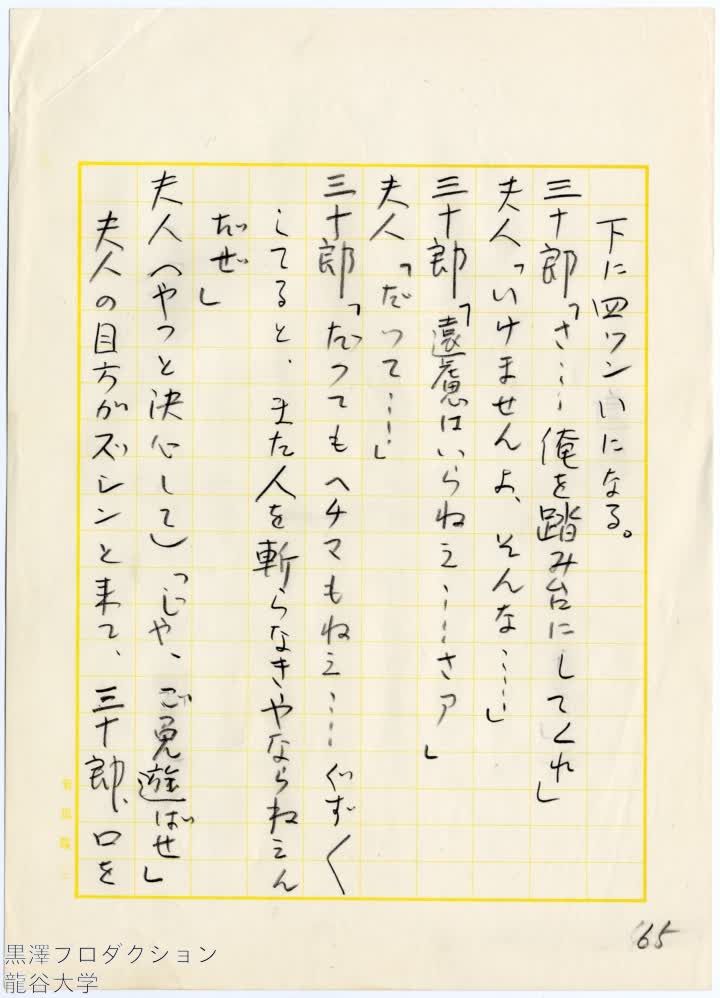 下に四ツンいになる。
三十郎「さ……俺を踏み台にしてくれ」
夫人「いけませんよ、そんな……」
三十郎「遠慮はいらねえ……さア」
夫人「だって……」
三十郎「だってもヘチマもねえ……ぐずぐ
してると、また人を斬らなきやならねえん
だぜ」
夫人（やつと決心して）「じや、ご免遊ばせ」
夫人の目方がズシンと来て、三十郎、口を
65
黒澤プロダクション
龍谷大学